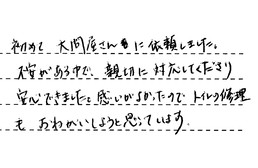 初めて大問屋さんに依頼しました。
不安がある中で、親切に対応してくださり
安心できました。感じがよかったのでトイレの修理
もおねがいしようと思っています。